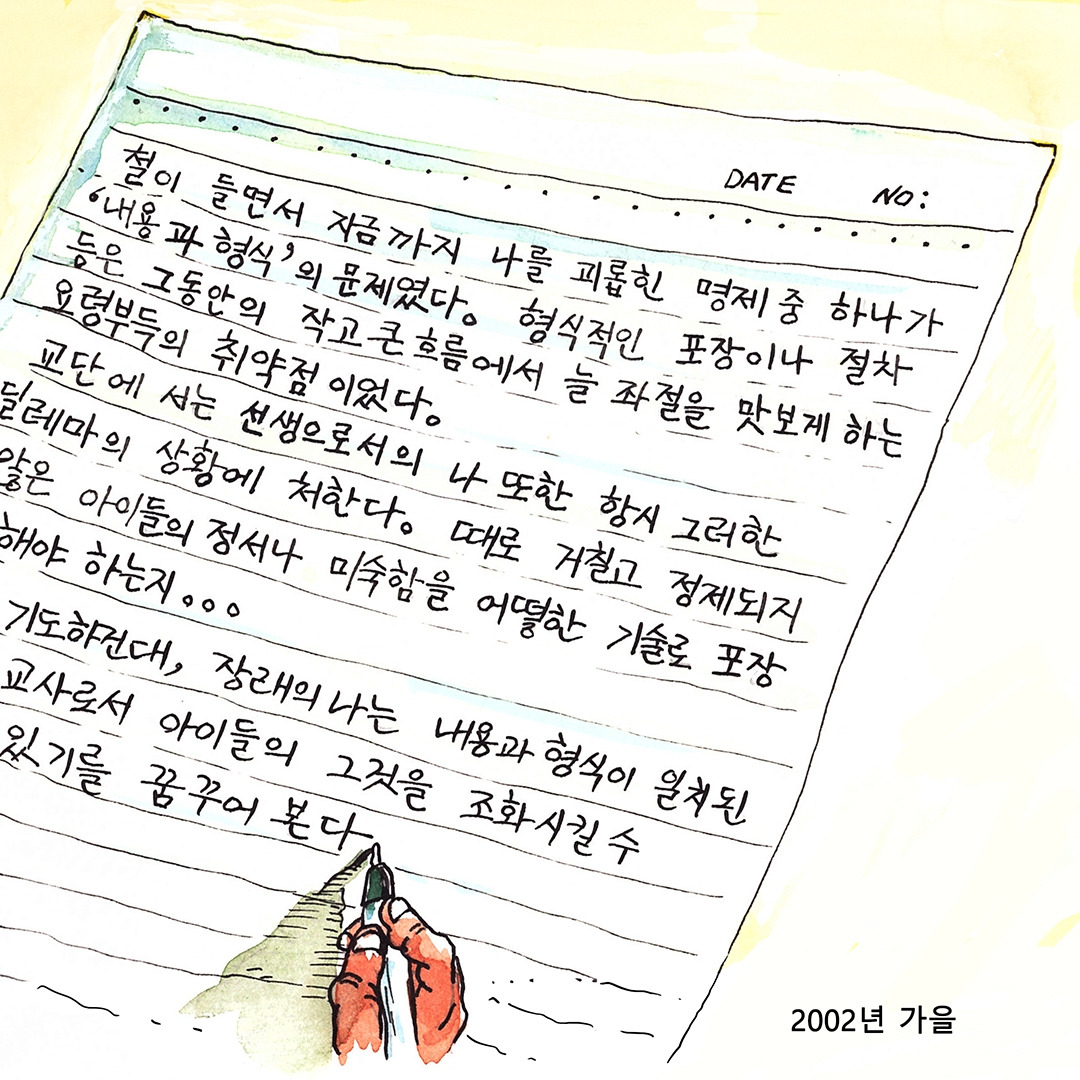 DATE NO:
철이 들면서 지금까지 나를 괴롭힌 명제 중 하나가
'내용과 형식'의 문제였다. 형식적인 포장이나 절차
등은 그동안의 작고 큰 흐름에서 늘 좌절을 맛보게 하는
요령부득의 취약점이었다.
교단에 서는 선생으로서의 나 또한 항시 그러한
딜레마의 상황에 처한다. 때로 거칠고 정제되지
않은 아이들의 정서나 미숙함을 어떻한 기술로 포장
해야 하는지...
기도하건대, 장래의 나는 내용과 형식이 일치된
교사로서 아이들의 그것을 조화시킬 수
있기를 꿈꾸어 본다
2002년 가을